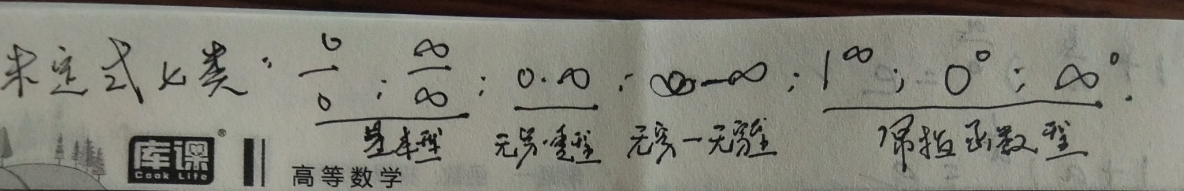 未定式七类：0/0；∞/∞；0·∞；∞-∞；1^∞；0^0；∞^0.
基本型 无穷·零型 无穷-无穷型 幂指函数型
库课® 高等数学
Cook Life